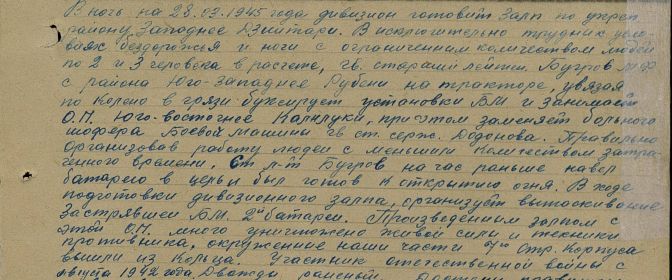 В ночь на 28.02.1945 года дивизион готовит залп по укреп
району, Западное Дзинтари. В исключительно трудних усло
виях бездорожья и ночи с ограниченним количеством людей
по 2 и 3 человека в расчете, гв. старший лейтен. Бугров
с района Юго-западнее Рубени на тракторе, увязая
по колено в грязи буксирует установки БМ и занимает
О.П. Юго-восточное при этом заменяет больного
шофера Боевой машины гв ст. серж. Додонова. Правильно
организовав работу людей с меньшим количеством затра-
ченного времени, Ст л-т Бугров на час раньше навел
батарею в цель и был готов к открытию огня. В ходе
подготовки дивизионного залпа, организует вытаскивание
застрявшей БМ 2й батареи. Произведенним залпом с
этой О.П. много уничтожено живой сили и техники
противника, окруженние наши части Стр. Корпуса
вышли из кольца. Участник отечественной войны с
августа 1942 года Дважды раненый.